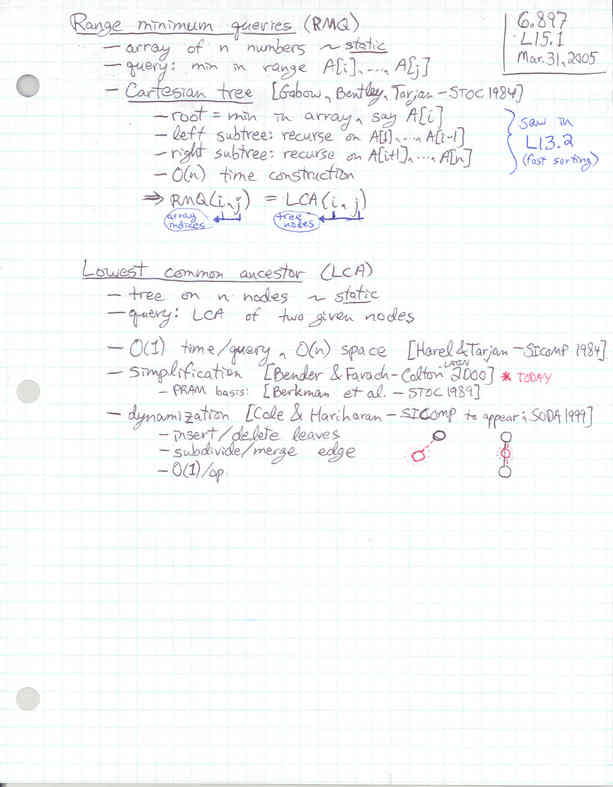 6.897
L15.1
Mar. 31, 2005
Range minimum queries (RMQ)
– array of n numbers ~ static
– query: min in range A[i], ..., A[j]
– Cartesian tree [Gabow, Bentley, Tarjan – STOC 1984]
– root = min in array, say A[i]
– left subtree: recurse on A[1], ..., A[i-1]
– right subtree: recurse on A[i+1], ..., A[n]
– O(n) time construction
saw in
L13.2
(fast sorting)
⇒ RMQ(i,j) = LCA(i,j)
array indices
tree nodes
Lowest common ancestor (LCA)
– tree on n nodes ~ static
– query: LCA of two given nodes
– O(1) time/query, O(n) space [Harel & Tarjan – SICOMP 1984]
– simplification [Bender & Farach-Colton LATIN 2000] * TODAY
– PRAM basis: [Berkman et al. – STOC 1989]
– dynamization [Cole & Hariharan – SICOMP to appear; SODA 1999]
– insert/delete leaves
– subdivide/merge edge
– O(1)/op.